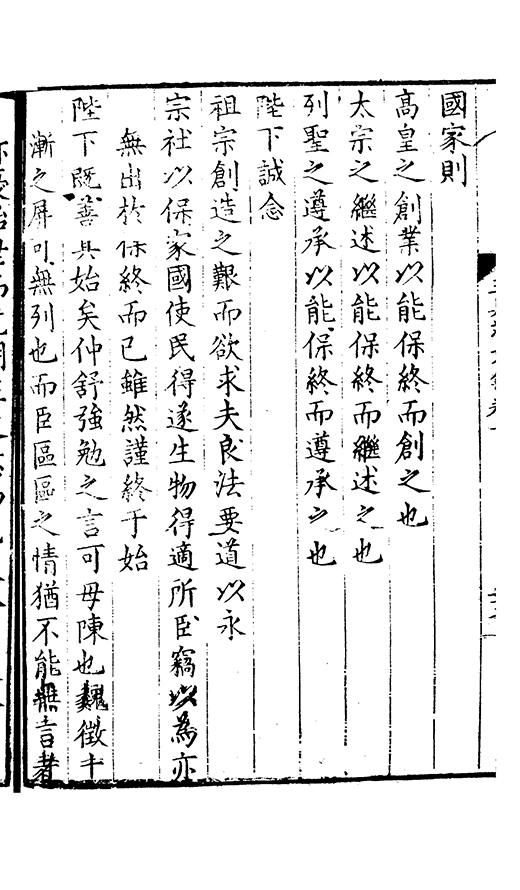 國家則
高皇之創業以能保終而創之也
太宗之繼述以能保終而繼述之也
列聖之遵承以能保終而遵承之也
陛下誠念
祖宗創造之艱而欲求夫良法要道以永
宗社以保家國使民得遂生物得適所臣竊以為亦
無出於保終而已雖然謹終于始
陛下既善其始矣仲舒強勉之言可毋陳也魏徵十
漸之屏可無列也而臣區區之情猶不能無言者